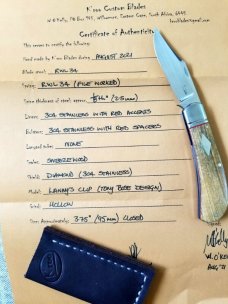 K'roo Custom Blades
W O'Kelly, PO Box 995, Villiersdorp, Eastern Cape, South Africa, 6848
Certificate of Authenticity
This serves to certify the following:
Hand made by K'roo Blades: AUGUST 2021
Blade steel: RWL 34
Spring: RWL 34 (FILE WORKED)
Spine thickness at pivot: (2.5mm)
Liners: 304 STAINLESS WITH RED ACCENTS
Bolsters: 304 STAINLESS WITH RED SPACERS
NONE
Scales: SNEEZEWOOD
Shield: DIAMOND (304 STAINLESS)
Model: LANNY'S CLIP (TONY BOSE DESIGN)
Grind: HOLLOW
Size: Approximately: 3.75" (95mm) CLOSED
W. O'KELLY
AUG '21